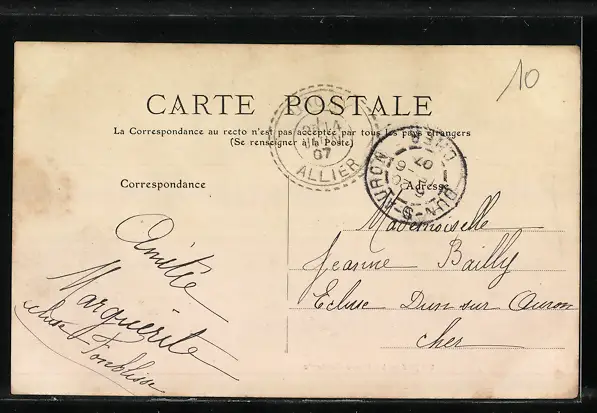 10
CARTE POSTALE
La Correspondance au recto n'est pas acceptée par tous les pays étrangers
(Se renseigner à la Poste)
07
ALLIER
DUN-S-AURON
CHER
07
Correspondance
Adresse
Amitié
Marguerite
Mademoiselle
Jeanne Bailly
Ecluse Dun sur Auron
Cher